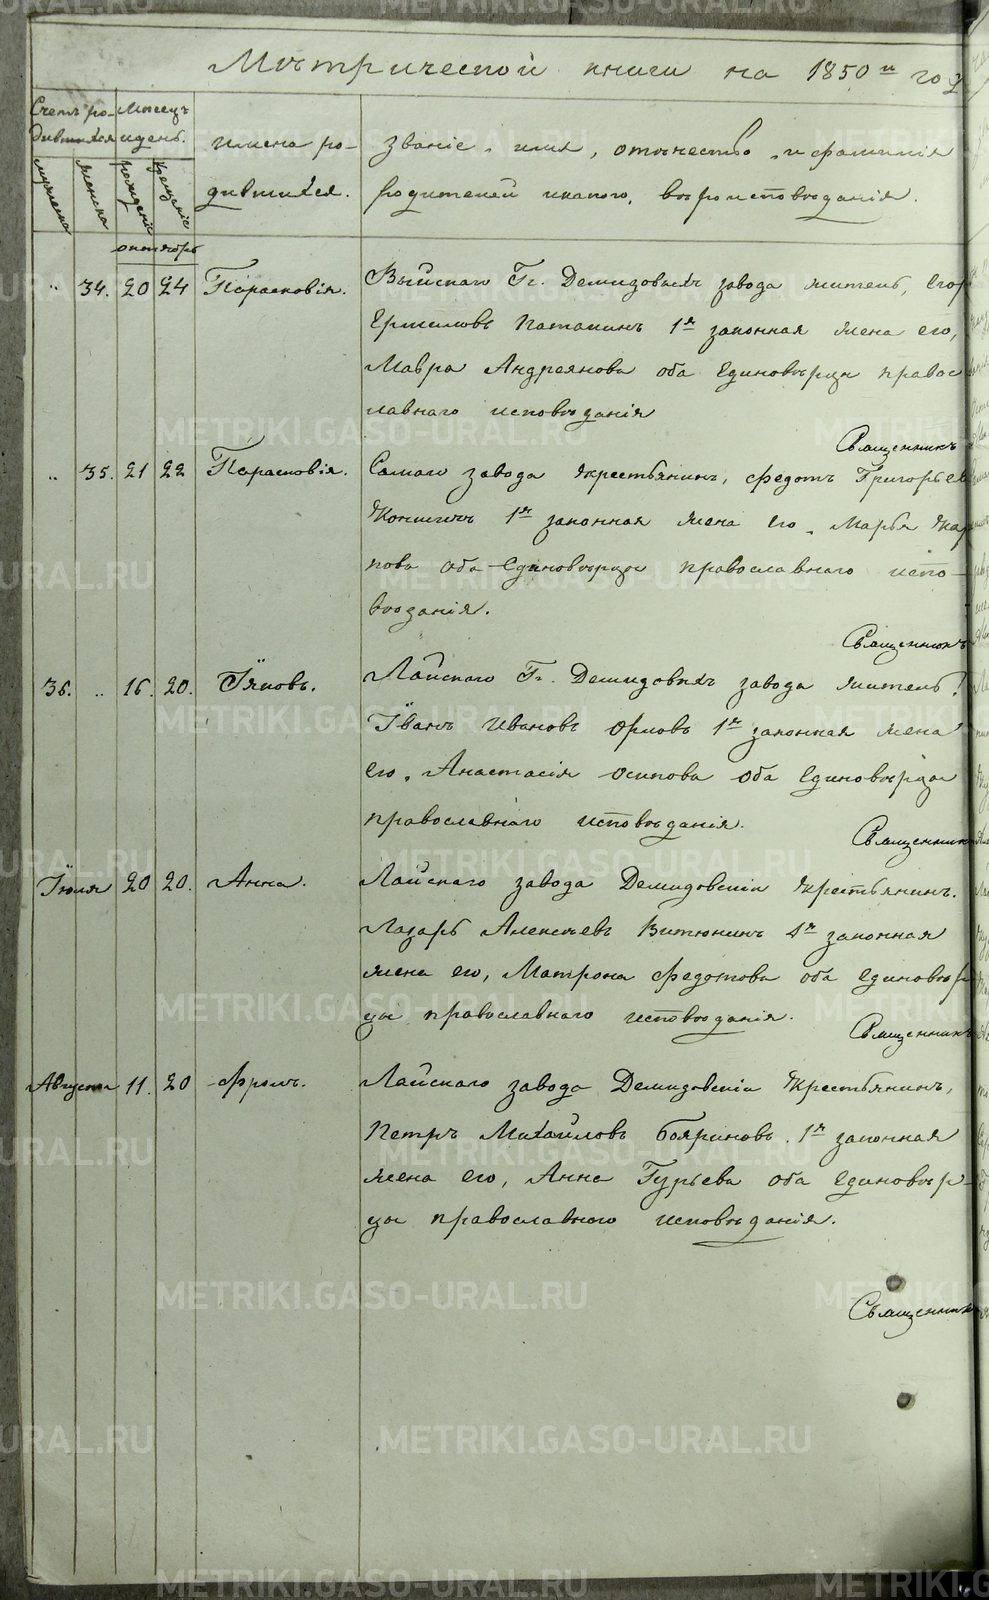 Мѣтрической книги на 1850й год
Счетъ ро- Месецъ
дившихся и день.
имена ро-
дившихся.
званіе, имя, отечество, и фамилія
родителей и какого, вѣроисповѣданія.
мужеска
женска
рожденіе
крещеніе
октябрь
„ 34. 20 24 Парасковія. Выйскаго Гг. Демидовыхъ завода житель, Егор
Ермиловъ Патакинъ 1я законная жена его,
Мавра Андреянова оба Единовѣрцы правос
лавнаго исповѣданія
Священникъ
„ 35. 21 22 Парасковія. Самаго завода крестьянинъ, Федотъ Григорьев
1я законная жена его, Марья Кар
пова оба Единовѣрцы православнаго испо-
вѣданія.
Священникъ
36. „ 16. 20. Іяковъ. Лайскаго Гг. Демидовыхъ завода житель,
Іванъ Ивановъ Орловъ 1я законная жена
его, Анастасія Осипова оба Единовѣрцы
православнаго исповѣданія.
Священник
Іюля 20 20. Анна. Лайскаго завода Демидовскій крестьянинъ.
Лазарь Алексѣевъ Витюнинъ 1я законная
жена его, Матрона Федотова оба Единовѣр
цы православнаго исповѣданія.
Священникъ
Августа 11. 20 Фролъ. Лайскаго завода Демидовскій крестьянинъ,
Петръ Михайловъ Бояриновъ. 1я законная
жена его, Анна Гурьева оба Единовѣр-
цы православнаго исповѣданія.
Священник
METRIKI.GASO-URAL.RU